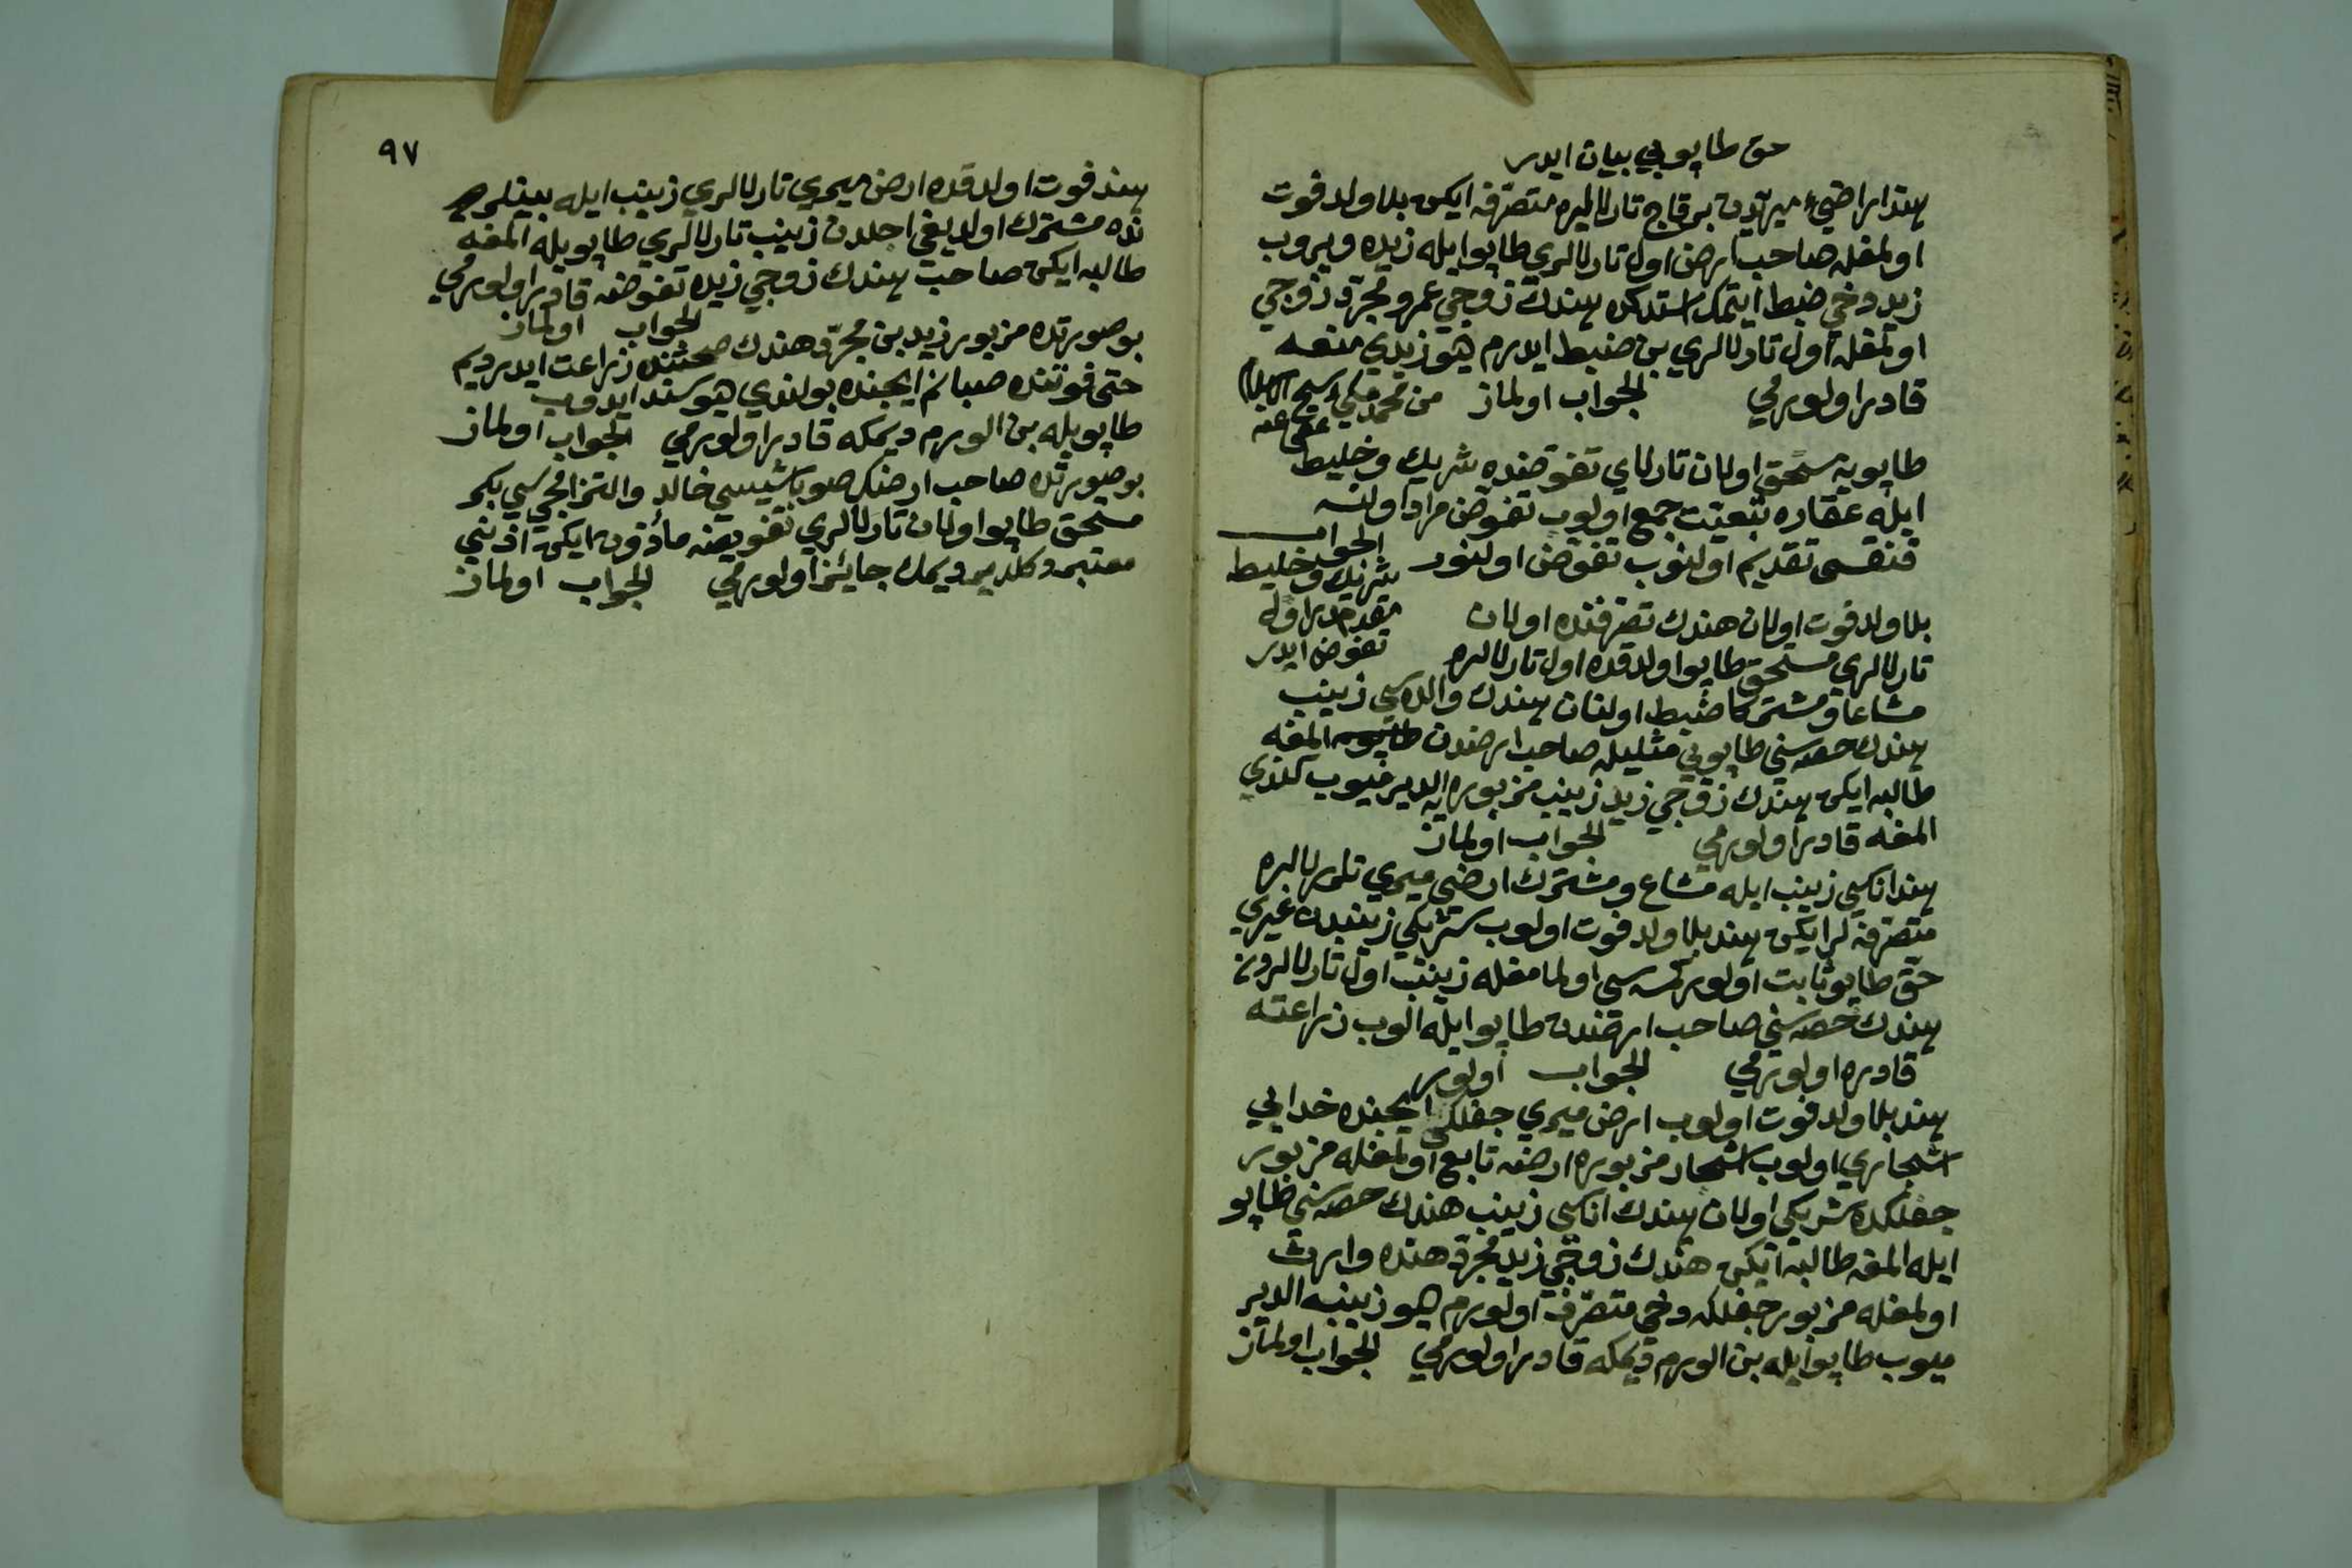 حق طاپويي بيان ايدر
هند اراضیء ميريّه‌دن برقاج تارلالره متصرّفه ايكن بلا ولد فوت
اولمغله صاحب ارض اول تارلالري طاپو ايله زيده ويروب
زيد دخي ضبط ايتمك استدكده هندك زوجي عمرو مجرّد زوجي
اولمغله اول تارلالري بن ضبط ايدرم ديو زيدي منعه
قادر اولورمي الجواب اولماز من محمد مكي شيخ الاسلام
عفي عنه
طاپويه مستحق اولان تارلاي تفوضنده شريك وخليط
ايله عقاره بتعيّت جمع اولوب تفوض مراد اولنسه
قنقسى تقديم اولنوب تفوض اولنور الجواب
شريك وخليط
مقدمدر اوله
تفوض ايدر
بلا ولد فوت اولان هندك تصرفنده اولان
تارلالري مستحق طاپو اولدقده اول تارلالره
مشاعا ومشتركا ضبط اولنان هندك والده‌سي زينب
هندك حصه‌سني طاپويي مثليله صاحب ارضدن المغه
طالبه ايكن هندك زوجي زيد زينب مزبوره‌يه الديرميوب كندي
المغه قادر اولورمي الجواب اولماز
هند اناسي زينب ايله مشاع ومشترك ارض ميري تلرلالره
متصرّفه‌لر ايكن هند بلا ولد فوت اولوب شريكي زينبدن غيري
حق طاپو ثابت اولور كمسه‌سي اولمامغله زينب اول تارلالردن
هندك حصه‌سني صاحب ارضدن طاپو ايله الوب زراعته
قادره اولورمي الجواب اولور
هند بلا ولد فوت اولوب ارض ميري جفلكي ايچنده خدايي
اشجاري اولوب اشجار مزبوره ارضه تابع اولمغله مزبور
جفلكده شريكي اولان هندك اناسي زينب هندك حصه‌سني طاپو
ايله المغه طالبه ايكن هندك زوجي زيد مجرّد هنده وارث
اولمغله مزبور جفلكه دخي متصرّف اولورم ديو زينبه الدير
ميوب طاپو ايله بن الورم ديمكه قادر اولورمي الجواب اولماز
٩٧
هند فوت اولدقده ارض ميري تارلالري زينب ايله بينلر
نده مشترك اولديغي اجلدن زينب تارلالري طاپويله المغه
طالبه ايكن صاحب هندك زوجي زيده تفوضه قادر اولورمي
الجواب اولماز
بو صورتده مزبور زيد بن مجرّد هندك صحتنده زراعت ايدرديم
حتى فوتنده صبانم ايچنده بولندي ديو سند ايدوب
طاپويله بن الورم ديمكه قادر اولورمي الجواب اولماز
بو صورتده صاحب ارضك صوباشيسي خالد والتزامجيسي بكر
مستحق طاپو اولان تارلالري تفويضه مأذون ايكن اذنني
معتبر دكلديم ديمك جائز اولورمي الجواب اولماز